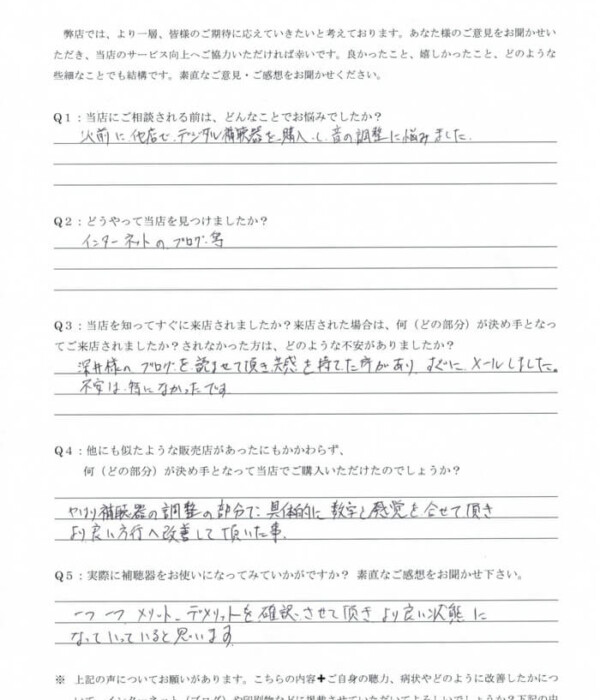 弊店では、より一層、皆様のご期待に応えていきたいと考えております。あなた様のご意見をお聞かせい
ただき、当店のサービス向上へご協力いただければ幸いです。良かったこと、嬉しかったこと、どのような
些細なことでも結構です。素直なご意見・ご感想をお聞かせください。
Q1：当店にご相談される前は、どんなことでお悩みでしたか？
以前に他店でデジタル補聴器を購入し、音の調整に悩みました。
Q2：どうやって当店を見つけましたか？
インターネットのブログ等
Q3：当店を知ってすぐに来店されましたか？来店された場合は、何（どの部分）が決め手となっ
てご来店されましたか？されなかった方は、どのような不安がありましたか？
深井様のブログを読ませて頂き共感を持てた所があり、すぐにメールしました。
不安は特になかったです
Q4：他にも似たような販売店があったにもかかわらず、
何（どの部分）が決め手となって当店でご購入いただけたのでしょうか？
やはり補聴器の調整の部分で、具体的に数字と感覚を合せて頂き
より良い方行へ改善して頂いた事。
Q5：実際に補聴器をお使いになってみていかがですか？ 素直なご感想をお聞かせ下さい。
一つ一つメリット、デメリットを確認させて頂きより良い状態に
なっていっていると思います
※ 上記の声についてお願いがあります。こちらの内容+ご自身の聴力、病状やどのように改善したかにつ
いて、インターネット（ブログ）や印刷物などに掲載させていただいてよろしいでしょうか？下記の中